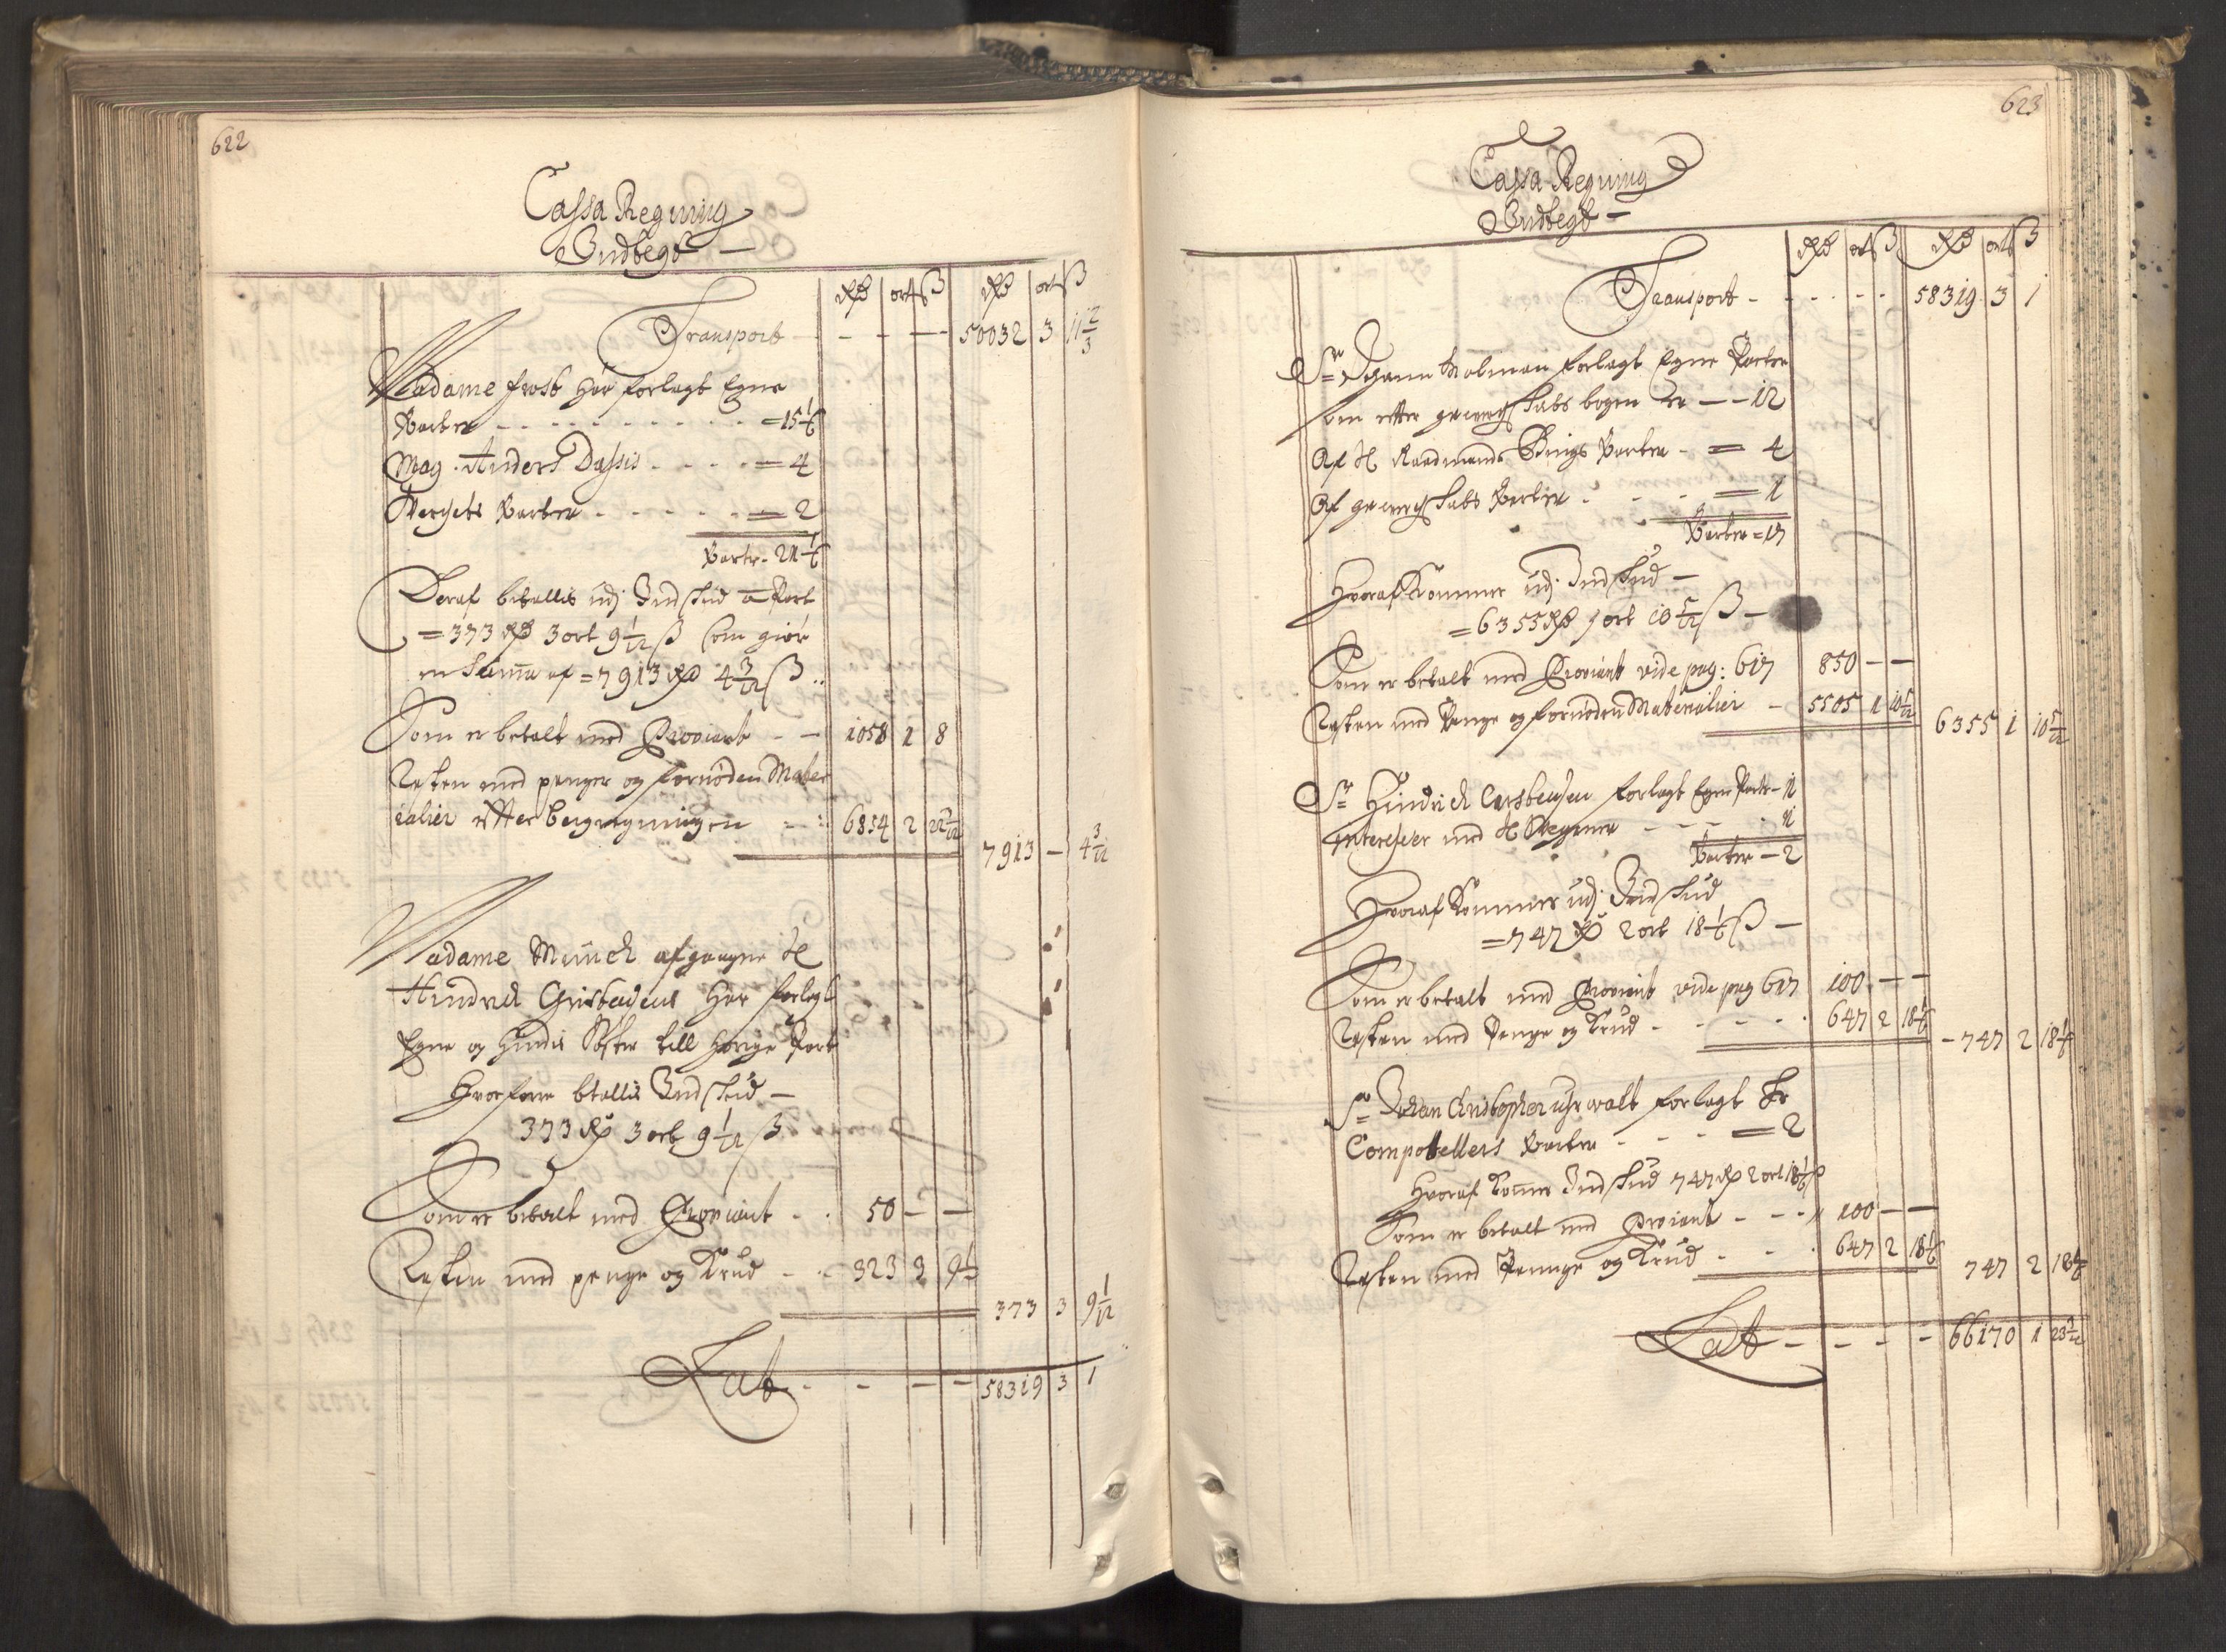 622
Cassa Regning
Indtegt
Rd ort ß Rd ort ß
Transport - - - 50032 3 11 2/3
Madame frost har forlagt Egne
Parter - - - = 15 1/6
Mag. Anders Dassis - - - = 4
Verchets Parter - - - = 2
Parter - 21 1/6
Deraf betallis udj Indskud a Part
= 373 Rd 3 ort 9 1/12 ß som giör
en Suma af = 7913 Rd 4 3/12 ß
Som er betalt med Proviant - - 1058 1 8
Resten med penger og fornöden Mater
ialier efter bergregningen 6854 2
7913 - 4 3/12
Madame Munch afgangne H
Hindrich Christensens har forlagt
Egne og hindis Söster till hörige Part
Hvorfore btallis Indskud -
373 Rd 3 ort 9 1/12 ß
Som er betalt med Proviant - - 50 - -
Resten med penge og Krud - - 323 3 9 1/12
373 3 9 1/12
Lat - - - - 58319 3 1
623
Cassa Regning
Indtegt -
Rd ort ß Rd ort ß
Transport - - - - - 58319 3 1
Sr Johann forlagt Egne Parter
som efter gewerchskabs bogen er - - 12
Af H Raadmand Parter - = 4
Af gewerchskabs Parter - - - = 1
Parter = 17
Hvoraf Kommer udj Indskud -
= 6355 Rd 1 ort 10 5/12 ß -
Som er betalt med Proviant vide pag: 617 850 - -
Resten med Penge og fornöden Materialier - 5505 1 10 5/12
6355 1 10 5/12
Sr Hindrich Carstensen forlagt Egen Part - 1
Interesser med H - - - - 1
Parter - 2
Hvoraf Kommer udj Indskud
= 747 Rd 2 ort 18 1/6 ß -
Som er betalt med Proviant vide pag 617 100 - -
Resten med Penge og Krud - - - - 647 2 18 1/6
- 747 2 18 1/6
Sr Johan Christopher forlagt
Parter - - - = 2
Hvoraf Komer Indskud 747 Rd 2 ort 18 1/6 ß
Som er betalt med Proviant - - - 100 - -
Resten med Penge og Krud - - - 647 2 18 1/6
747 2 18 1/6
Lat - - - - 66170 1 23 9/12